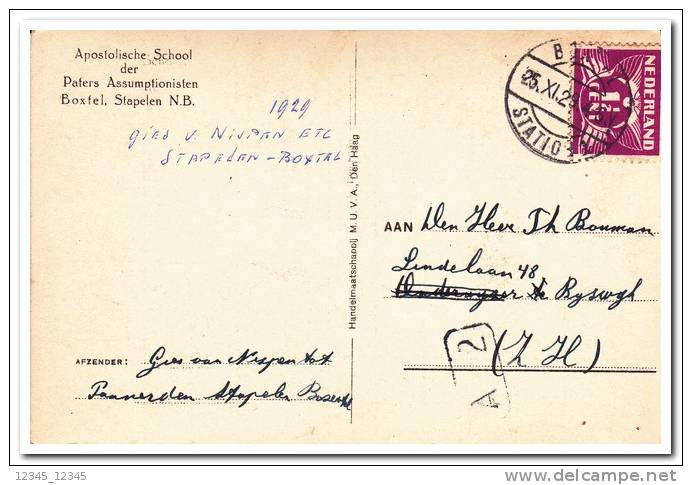 Apostolische School
der
Paters Assumptionisten
Boxtel, Stapelen N.B.
1929
GIES V. NISPEN ETC
STAPELEN - BOXTEL
Handelmaatschappij M.U.V.A., Den Haag
25.XI.29
STATION
NEDERLAND
1½
CENT
AAN Den Heer Th Bouman
Lindelaan 48
te Ryswyk
(Z H)
A 2
AFZENDER: Gies van Nispen tot
Pannerden Stapelen Boxtel
12345_12345
delcampe.net